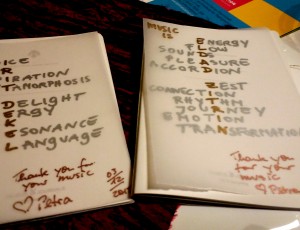 ICE
PIRATION
TAMORPHOSIS
DELIGHT
ERGY
ESONANCE
LANGUAGE
Thank you for
your music
Petra
03/
12
MUSIC
IS
ENERGY
FLOW
SOUNDS
PLEASURE
ACCORDION
ZEST
CONNECTION
RHYTHM
JOURNEY
EMOTION
TRANSFORMATION
Thank you
for your
music
Petra